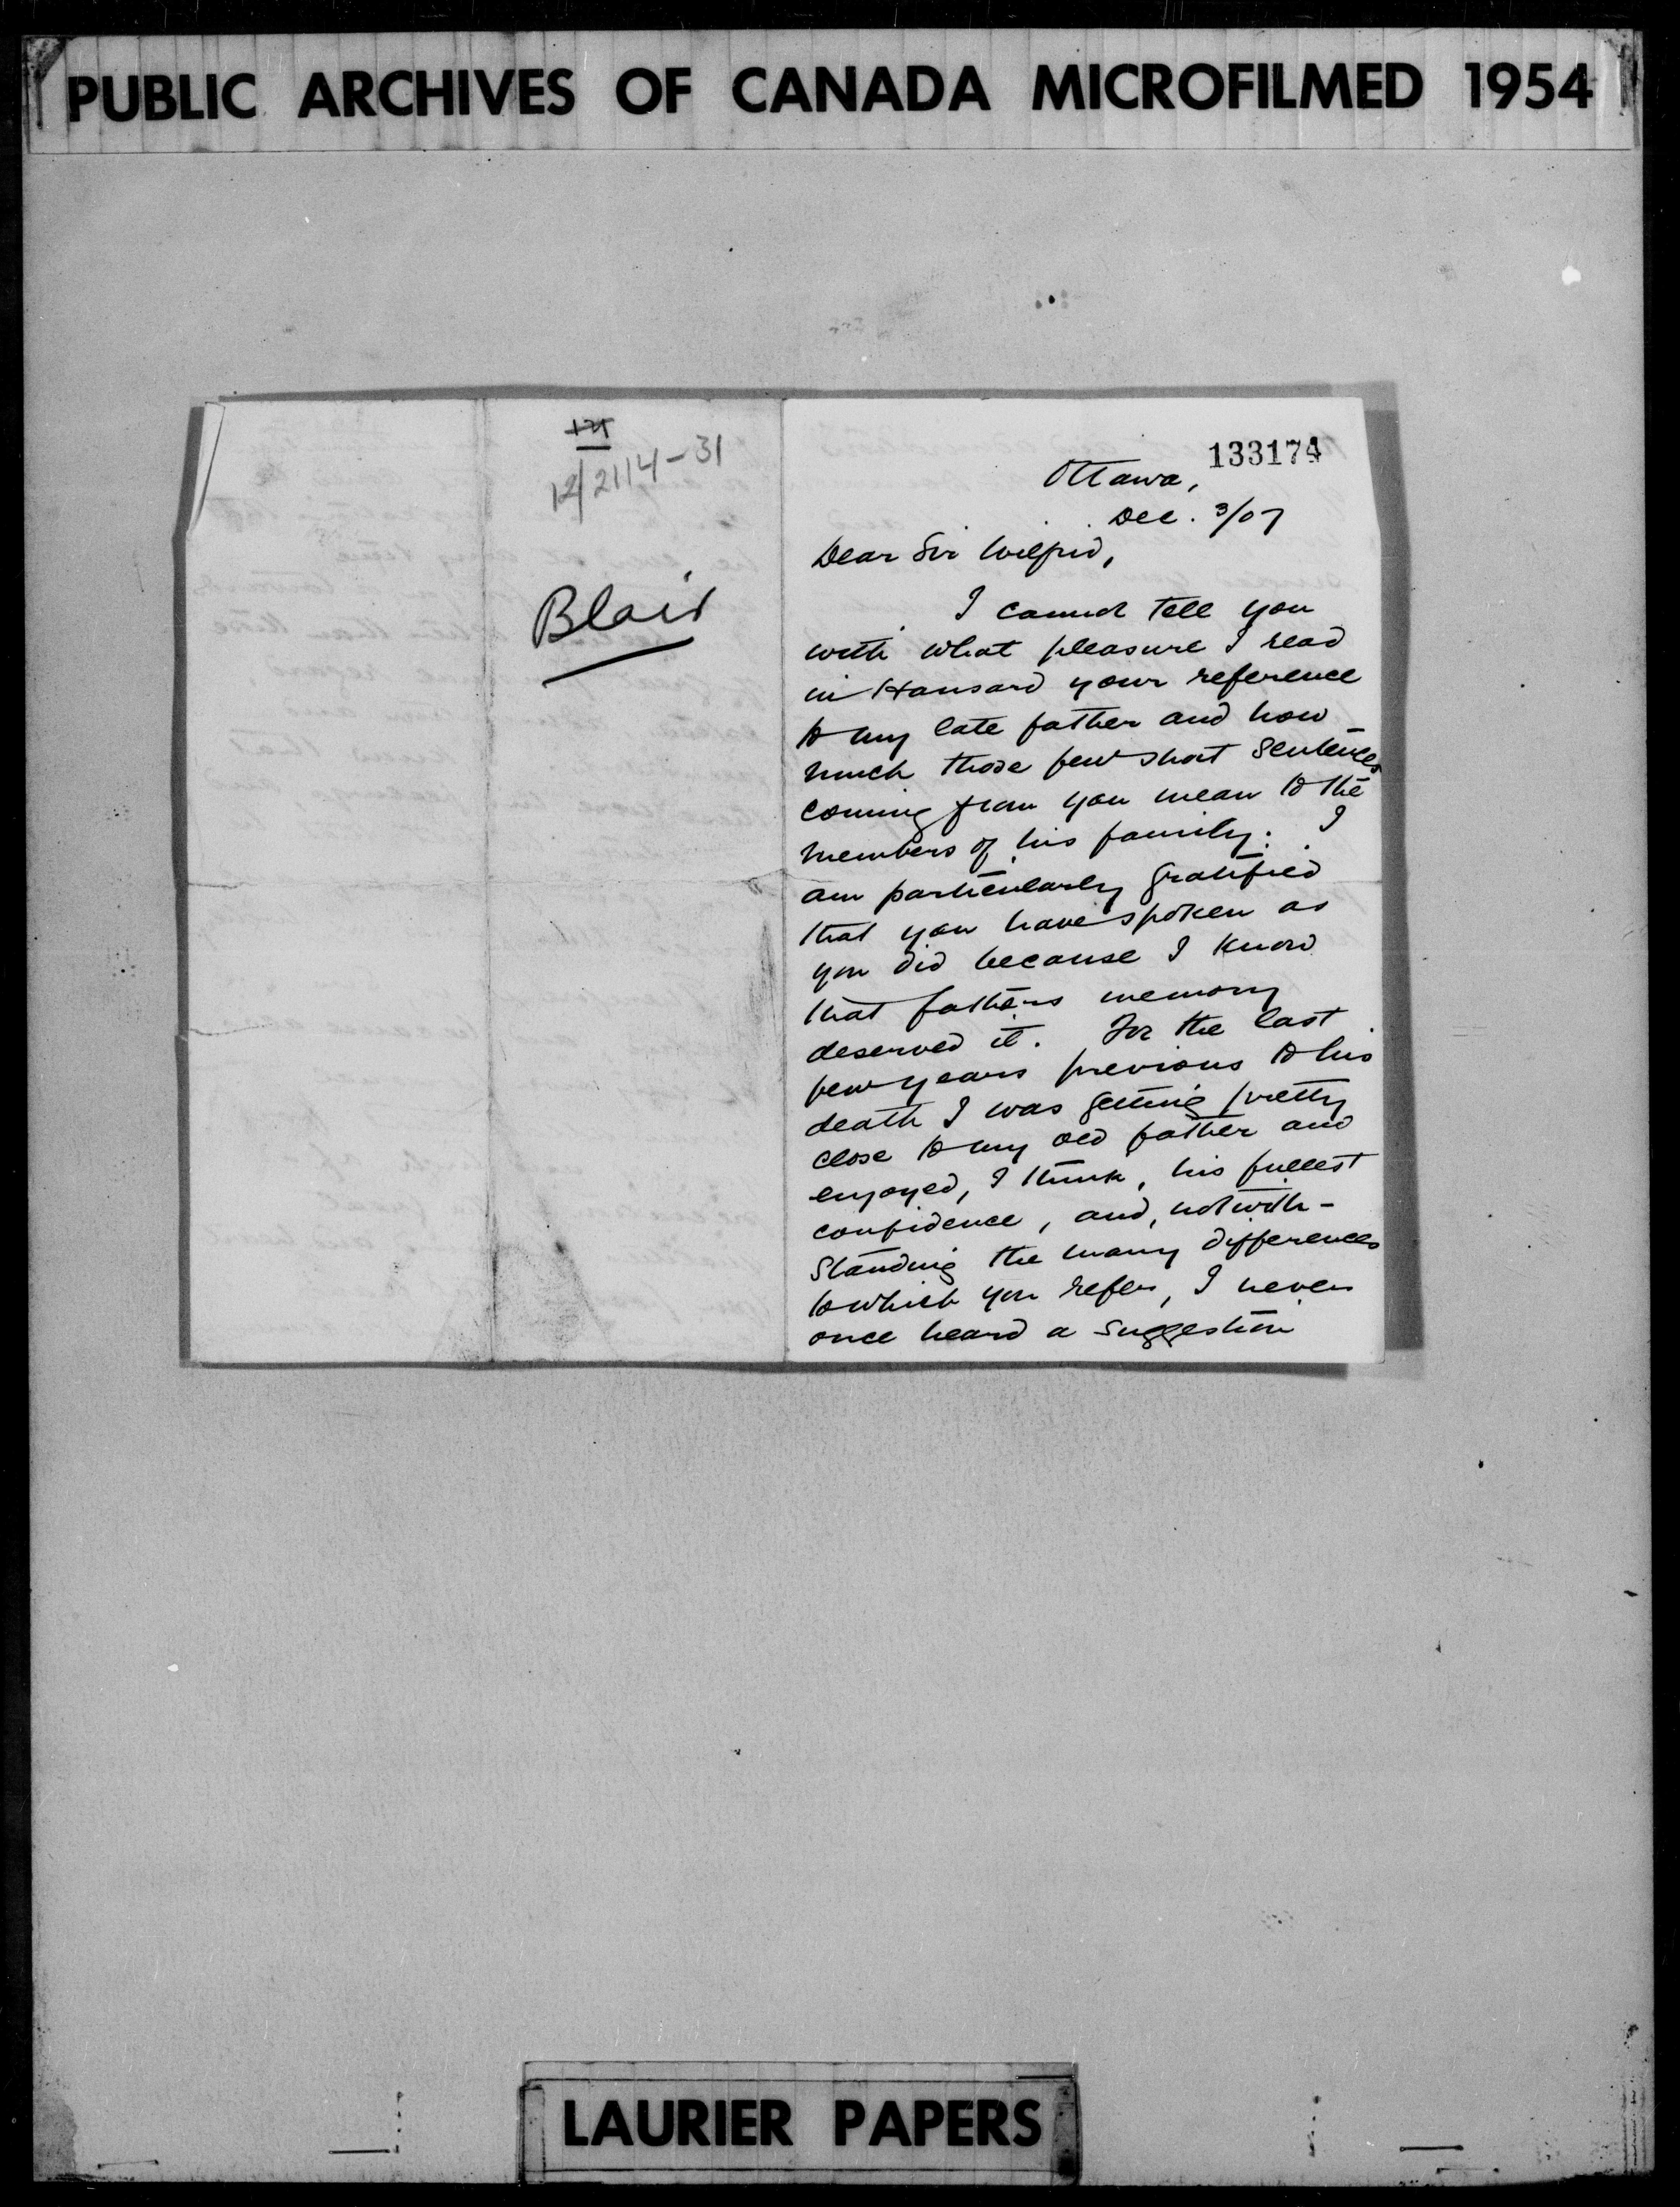 PUBLIC ARCHIVES OF CANADA MICROFILMED 1954
12/2114-31
Blair
133174
Ottawa,
Dec. 3/07
Dear Sir Wilfrid,
I cannot tell you
with what pleasure I read
in Hansard your reference
to my late father and how
much those few short sentences
coming from you mean to the
members of his family. I
am particularly gratified
that you have spoken as
you did because I know
that father's memory
deserved it. For the last
few years previous to his
death I was getting pretty
close to my old father and
enjoyed, I think, his fullest
confidence, and, notwith-
standing the many differences
to which you refer, I never
once heard a suggestion
LAURIER PAPERS